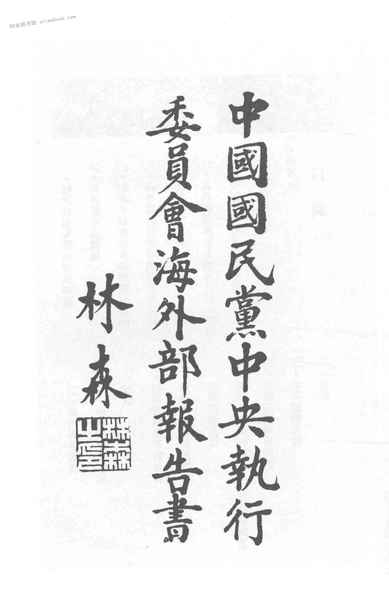 中國國民黨中央執行
委員會海外部報告書
林森
林森之印